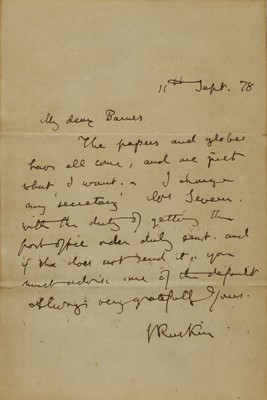 11th Sept. 78
My dear Barnes
The papers and globes
have all come, and are just
what I want. I charge
my secretary Mrs Severn,
with the duty of getting the
post office order duly sent and
if she does not send it, you
must advise me of the default
Always very gratefully Yours.
J Ruskin